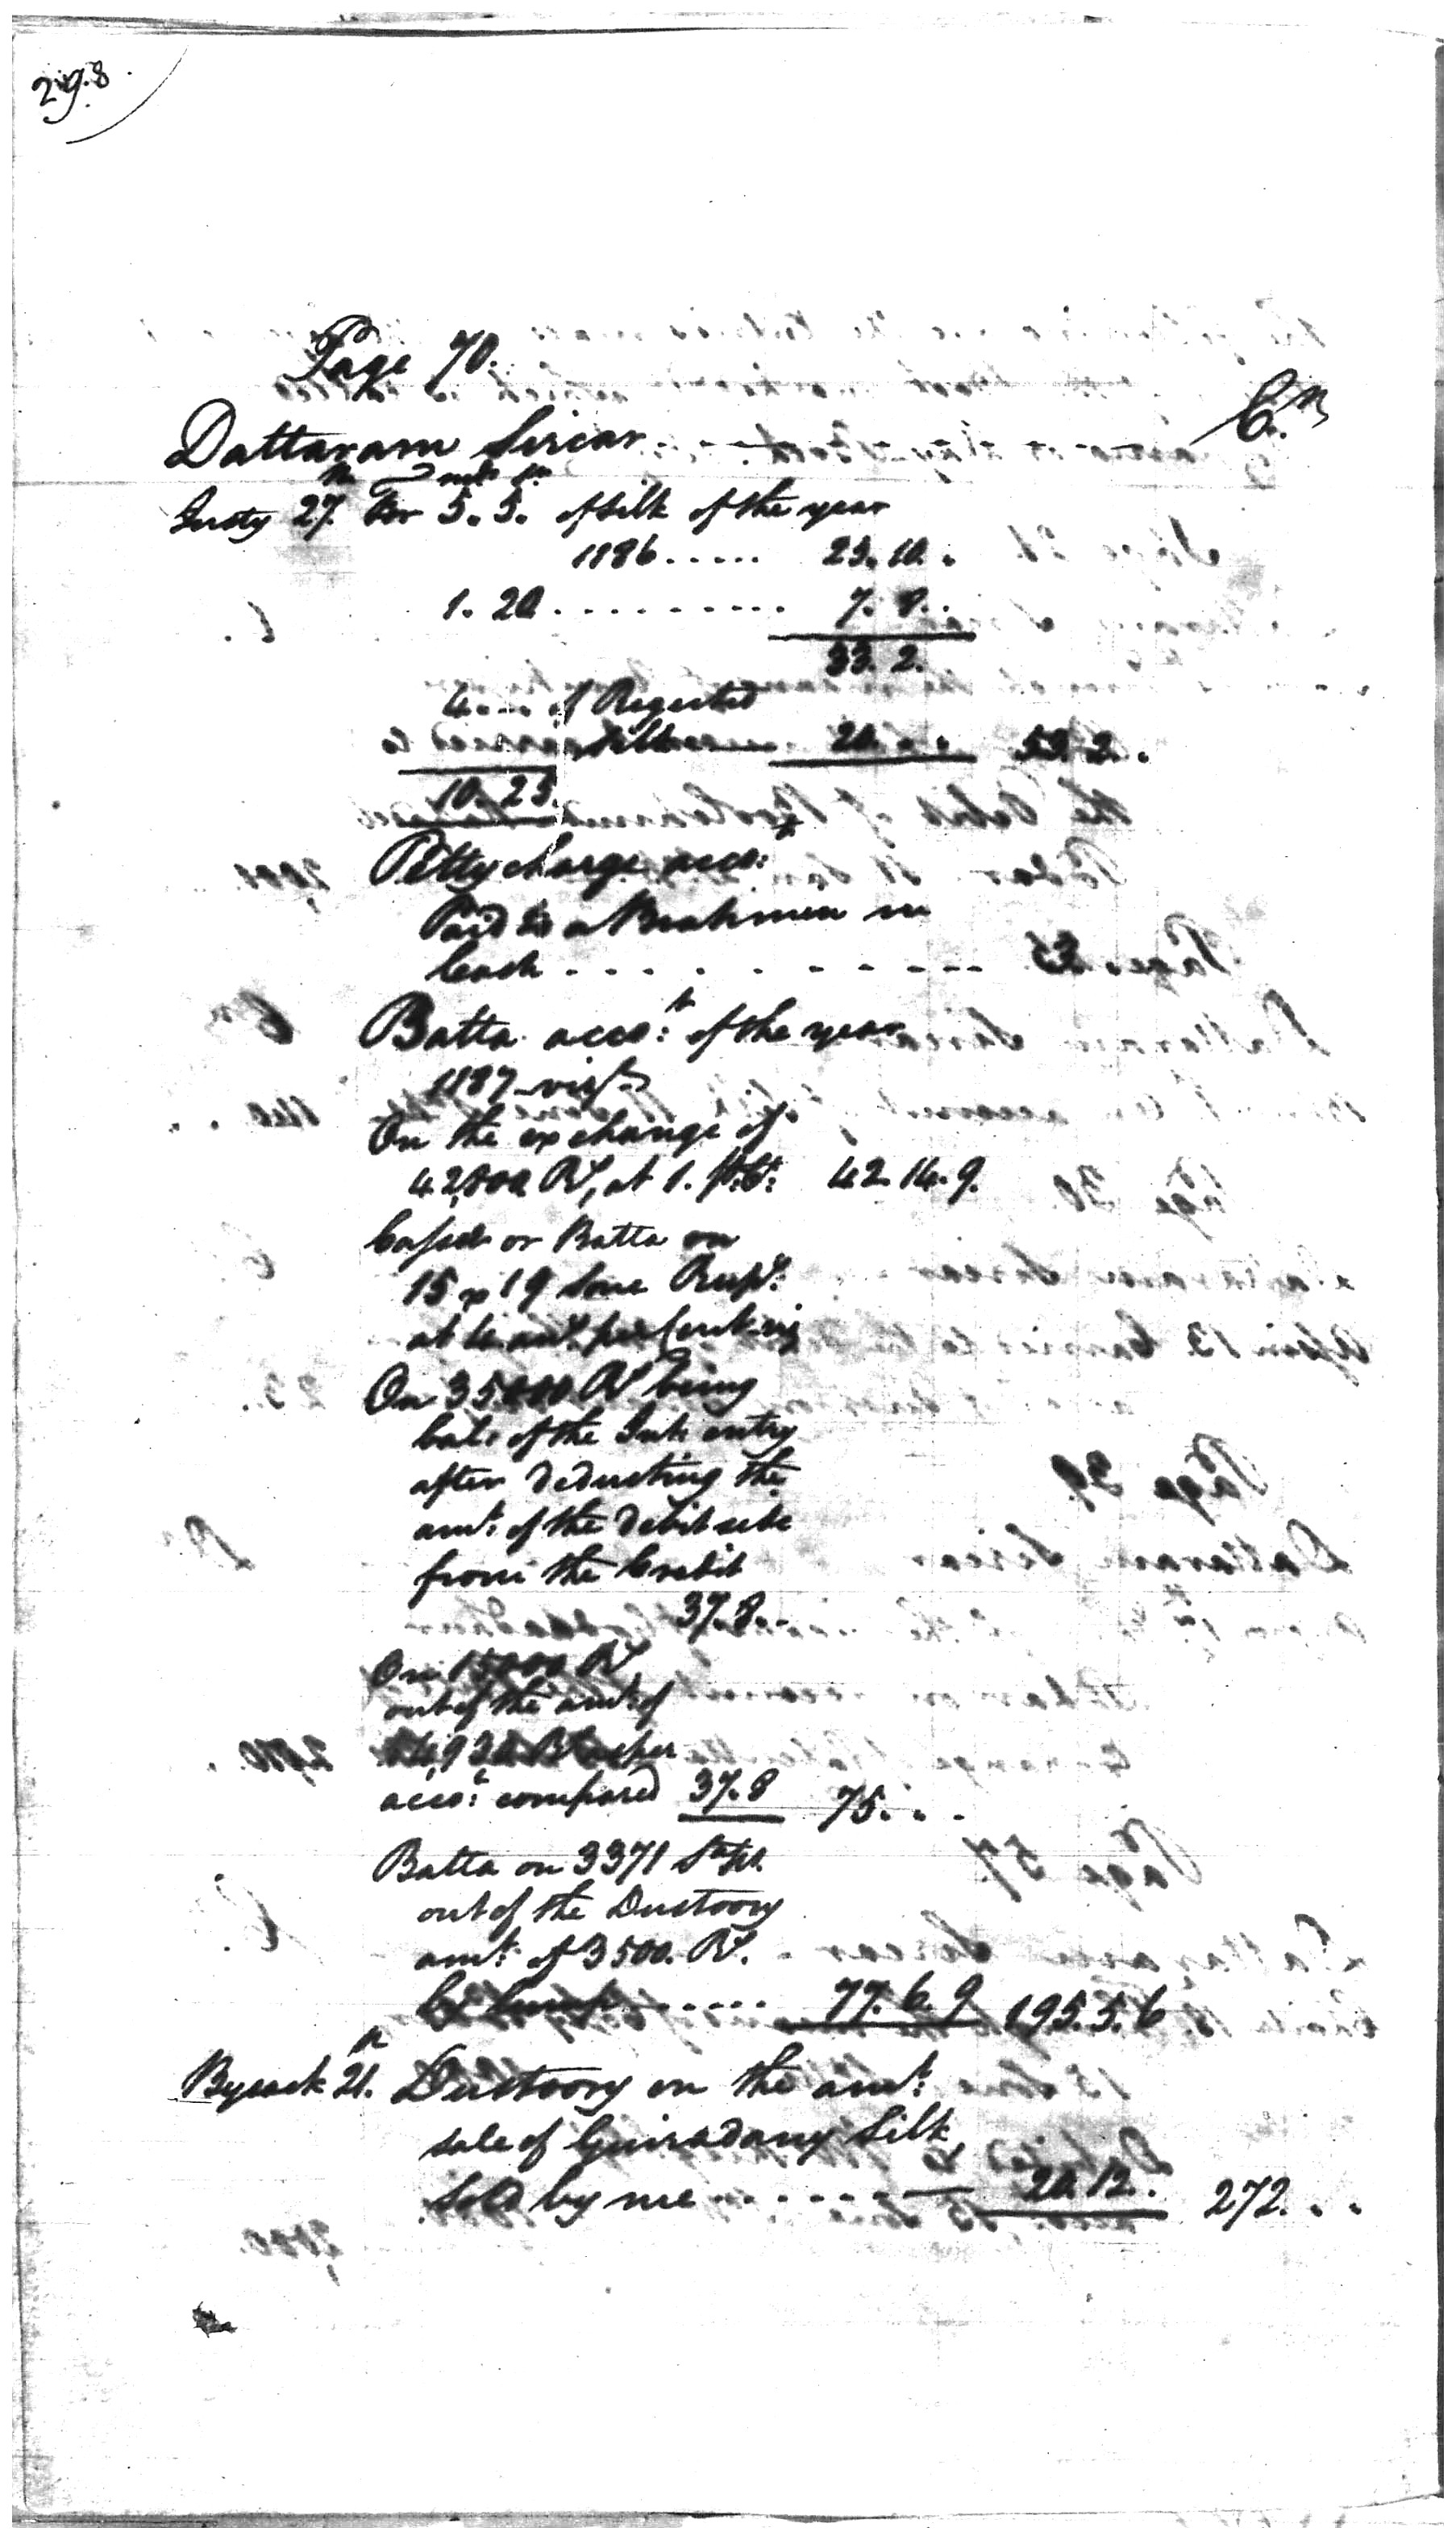 298.
Page 70.
Dattaram Sircar Cr
Mds Sr
Justy 27. For 5. 5. of silk of the year
1186 ..... 25. 10. .
1. 20 .......... 7. 8. .
33. 2.
4. .. of Rejected
Silk 20. . . 53. 2. .
10. 25.
Petty charge acco:t
Paid to a Brahmin in
Cash . . . . . . . . . .
Batta acco:t of the year
1187 viz
On the exchange of
42,800 Rs, at 1. pr. Ct: 42. 14. 9.
or Batta on
15 x 19 Sone Rups:
at 4 ans. per Cent. viz
On 35000 Rs being
bal: of the Jut: entry
after deducting the
amt: of the debit side
from the Credit
37. 8. -
On 15000 Rs
out of the amt: of
acco:t compared 37. 8 75. . .
Batta on 3371
out of the Dustoory
amt: of 3500. Rs.
..... 77. 6. 9 195. 5. 6
Bysack 21. Dustoory on the amt:
sale of Silk
Sold by me - - - - - 20. 12. . 272. . .